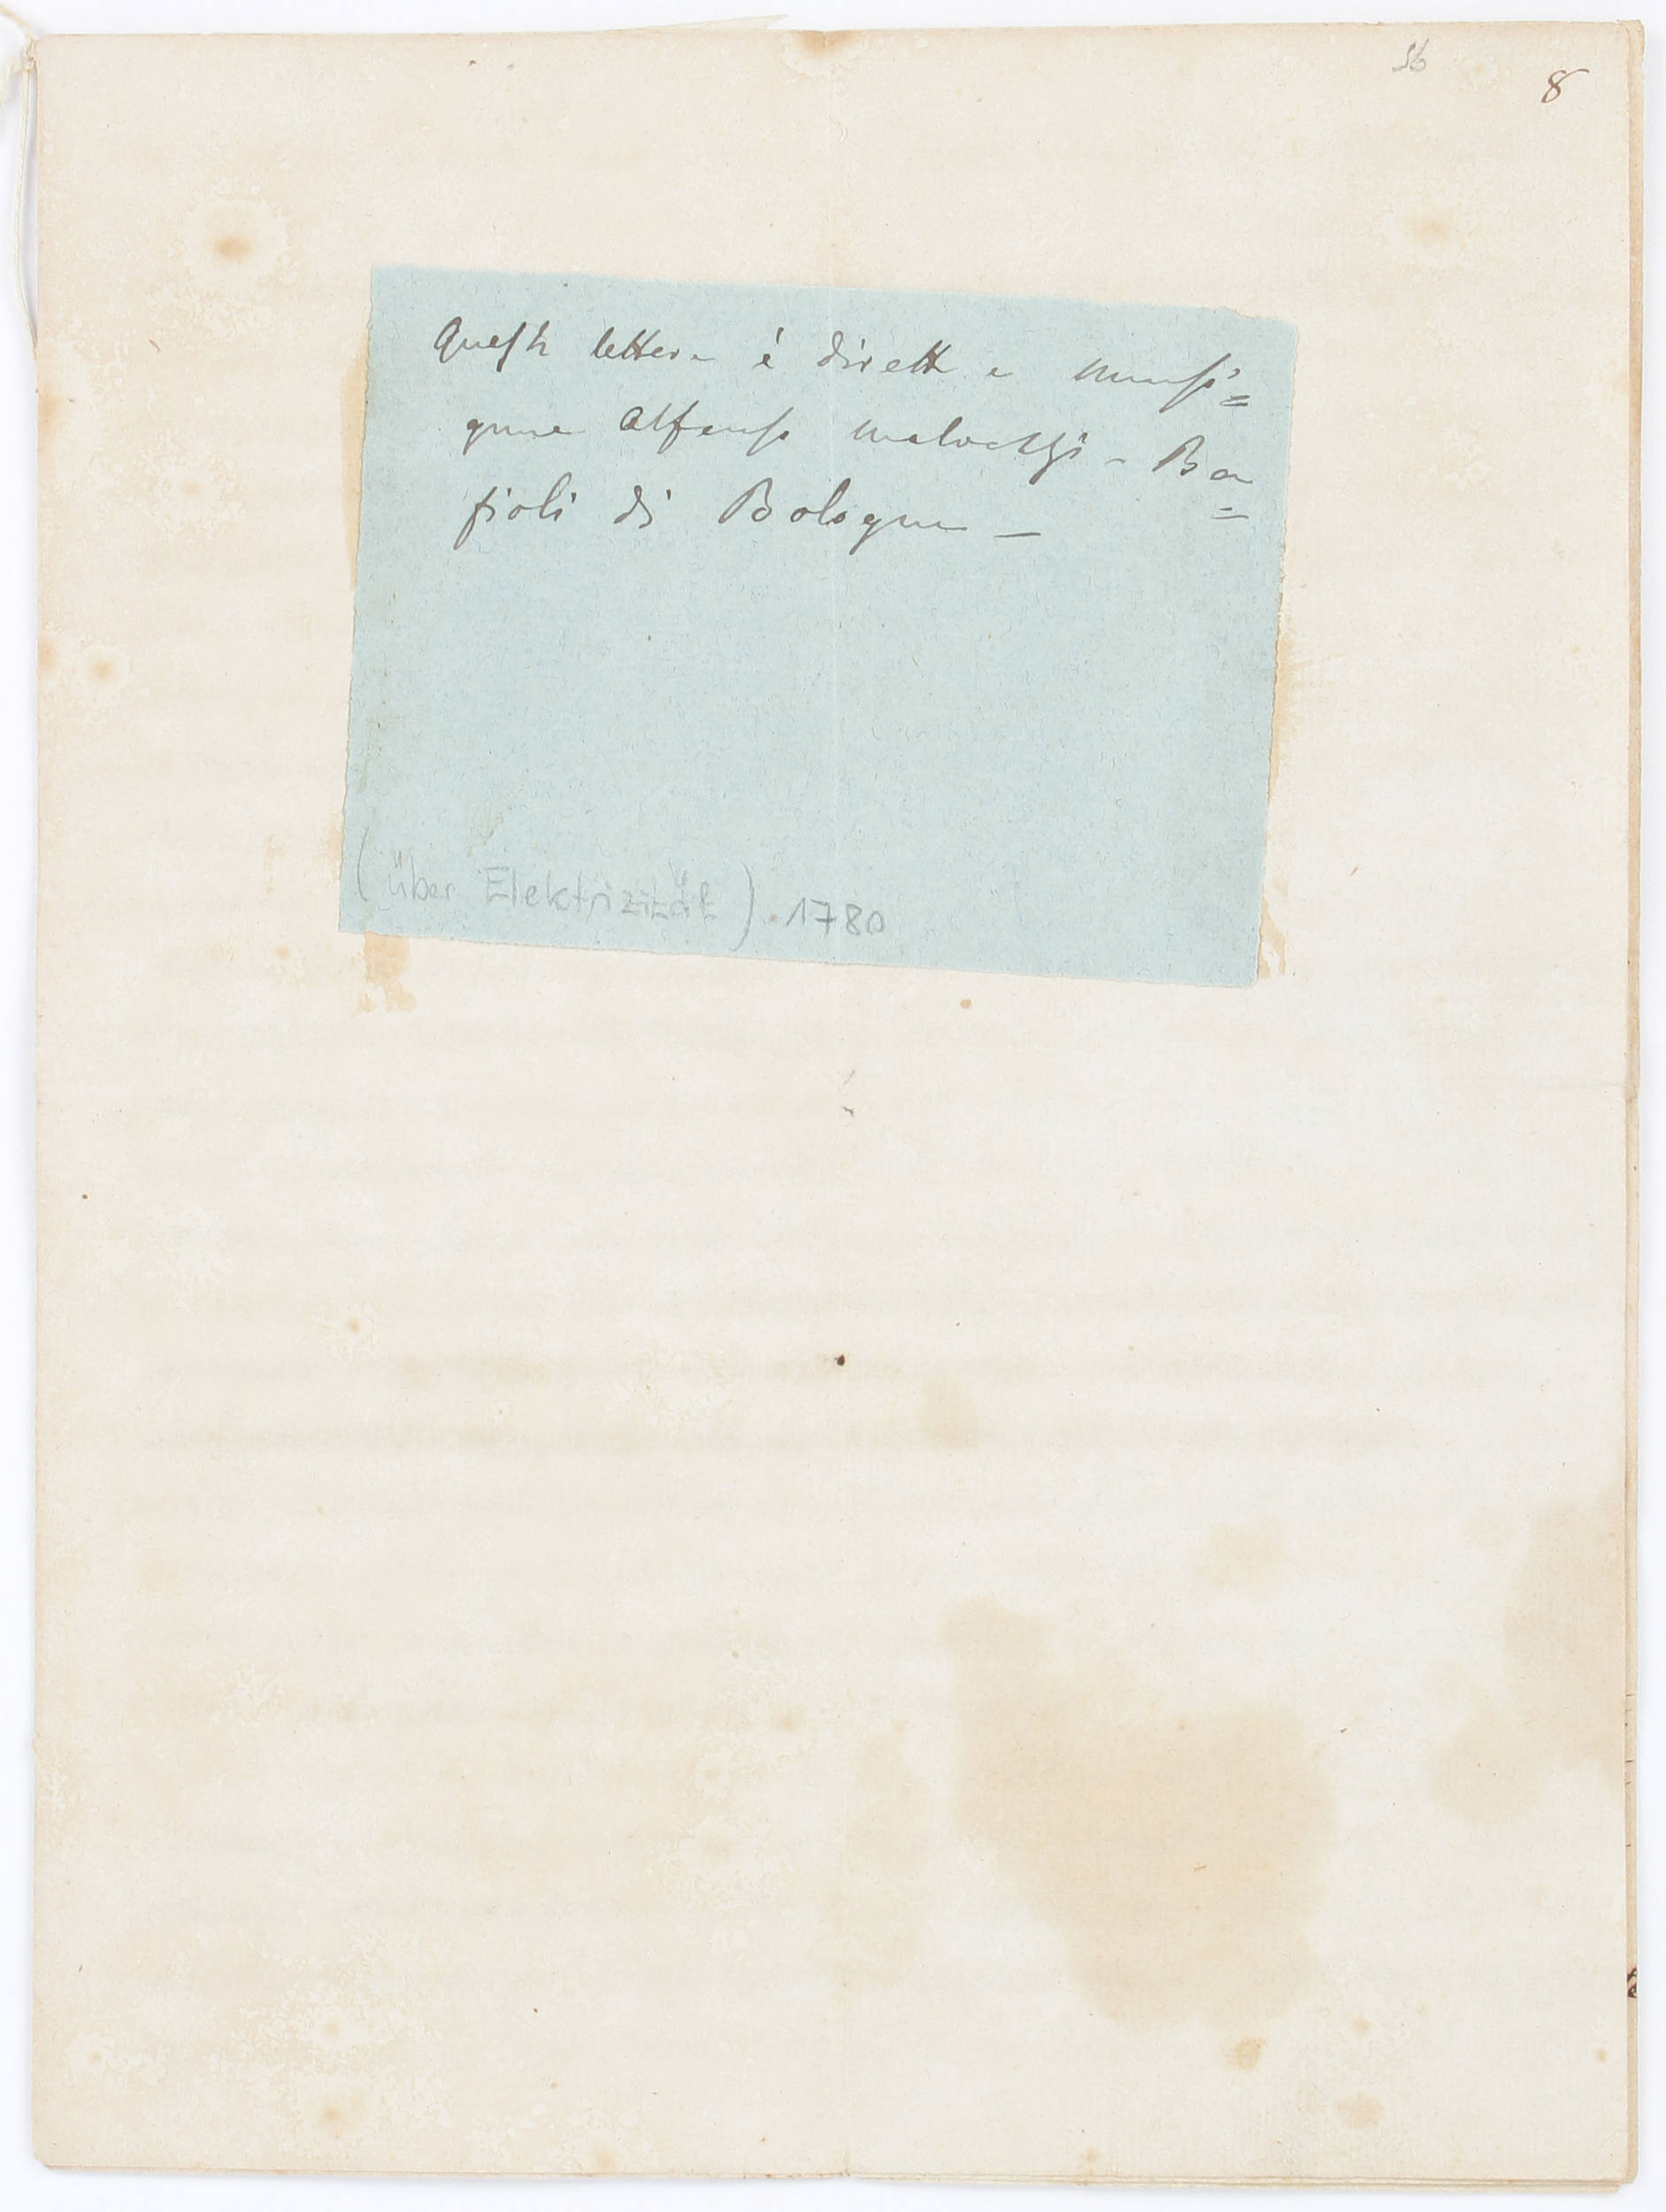 56
8
Questa lettera è diretta a Monsi=
gnore Alfonso Malvezzi - Bon=
fioli di Bologna —
(über Elektrizität) 1780